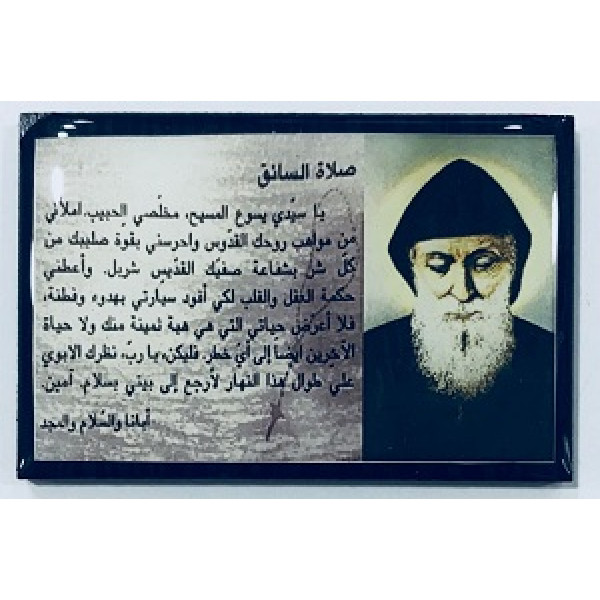 صلاة السائق
يا سيّدي يسوع المسيح، مخلّصي الحبيب، املأني
من مواهب روحك القدّوس واحرسني بقوة صليبك من
كلّ شرّ بشفاعة صفيّك القدّيس شربل. وأعطني
حكمة العقل والقلب لكي أقود سيارتي بهدوء وفطنة،
فلا أعرّض حياتي التي هي هبة ثمينة منك ولا حياة
الآخرين ايضاً إلى أي خطر. فليكن، يا ربّ، نظرك الابوي
علي طوال هذا النهار لأرجع إلى بيتي بسلام. آمين.
أبانا والسّلام والمجد